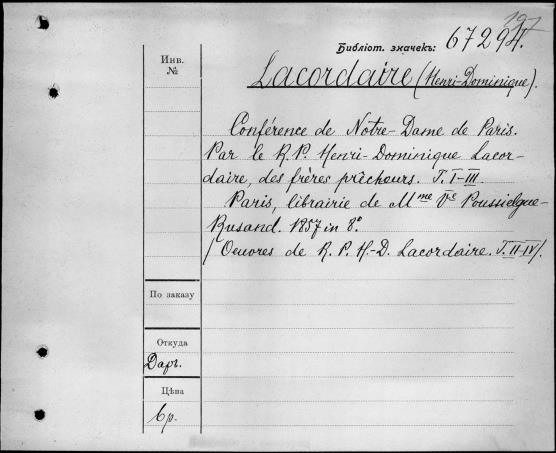 197
Библіот. значекъ: 67294.
Инв.
№
Lacordaire (Henri-Dominique).
Conférence de Notre-Dame de Paris.
Par le R. P. Henri-Dominique Lacor-
daire, des frères prêcheurs. T. I-III
Paris, librairie de Mme Ve Poussielgue-
Rusand. 1857 in 8°.
(Oeuvres de R. P. H.-D. Lacordaire. T. II-IV).
По заказу
Откуда
Даръ.
Цѣна
6р.